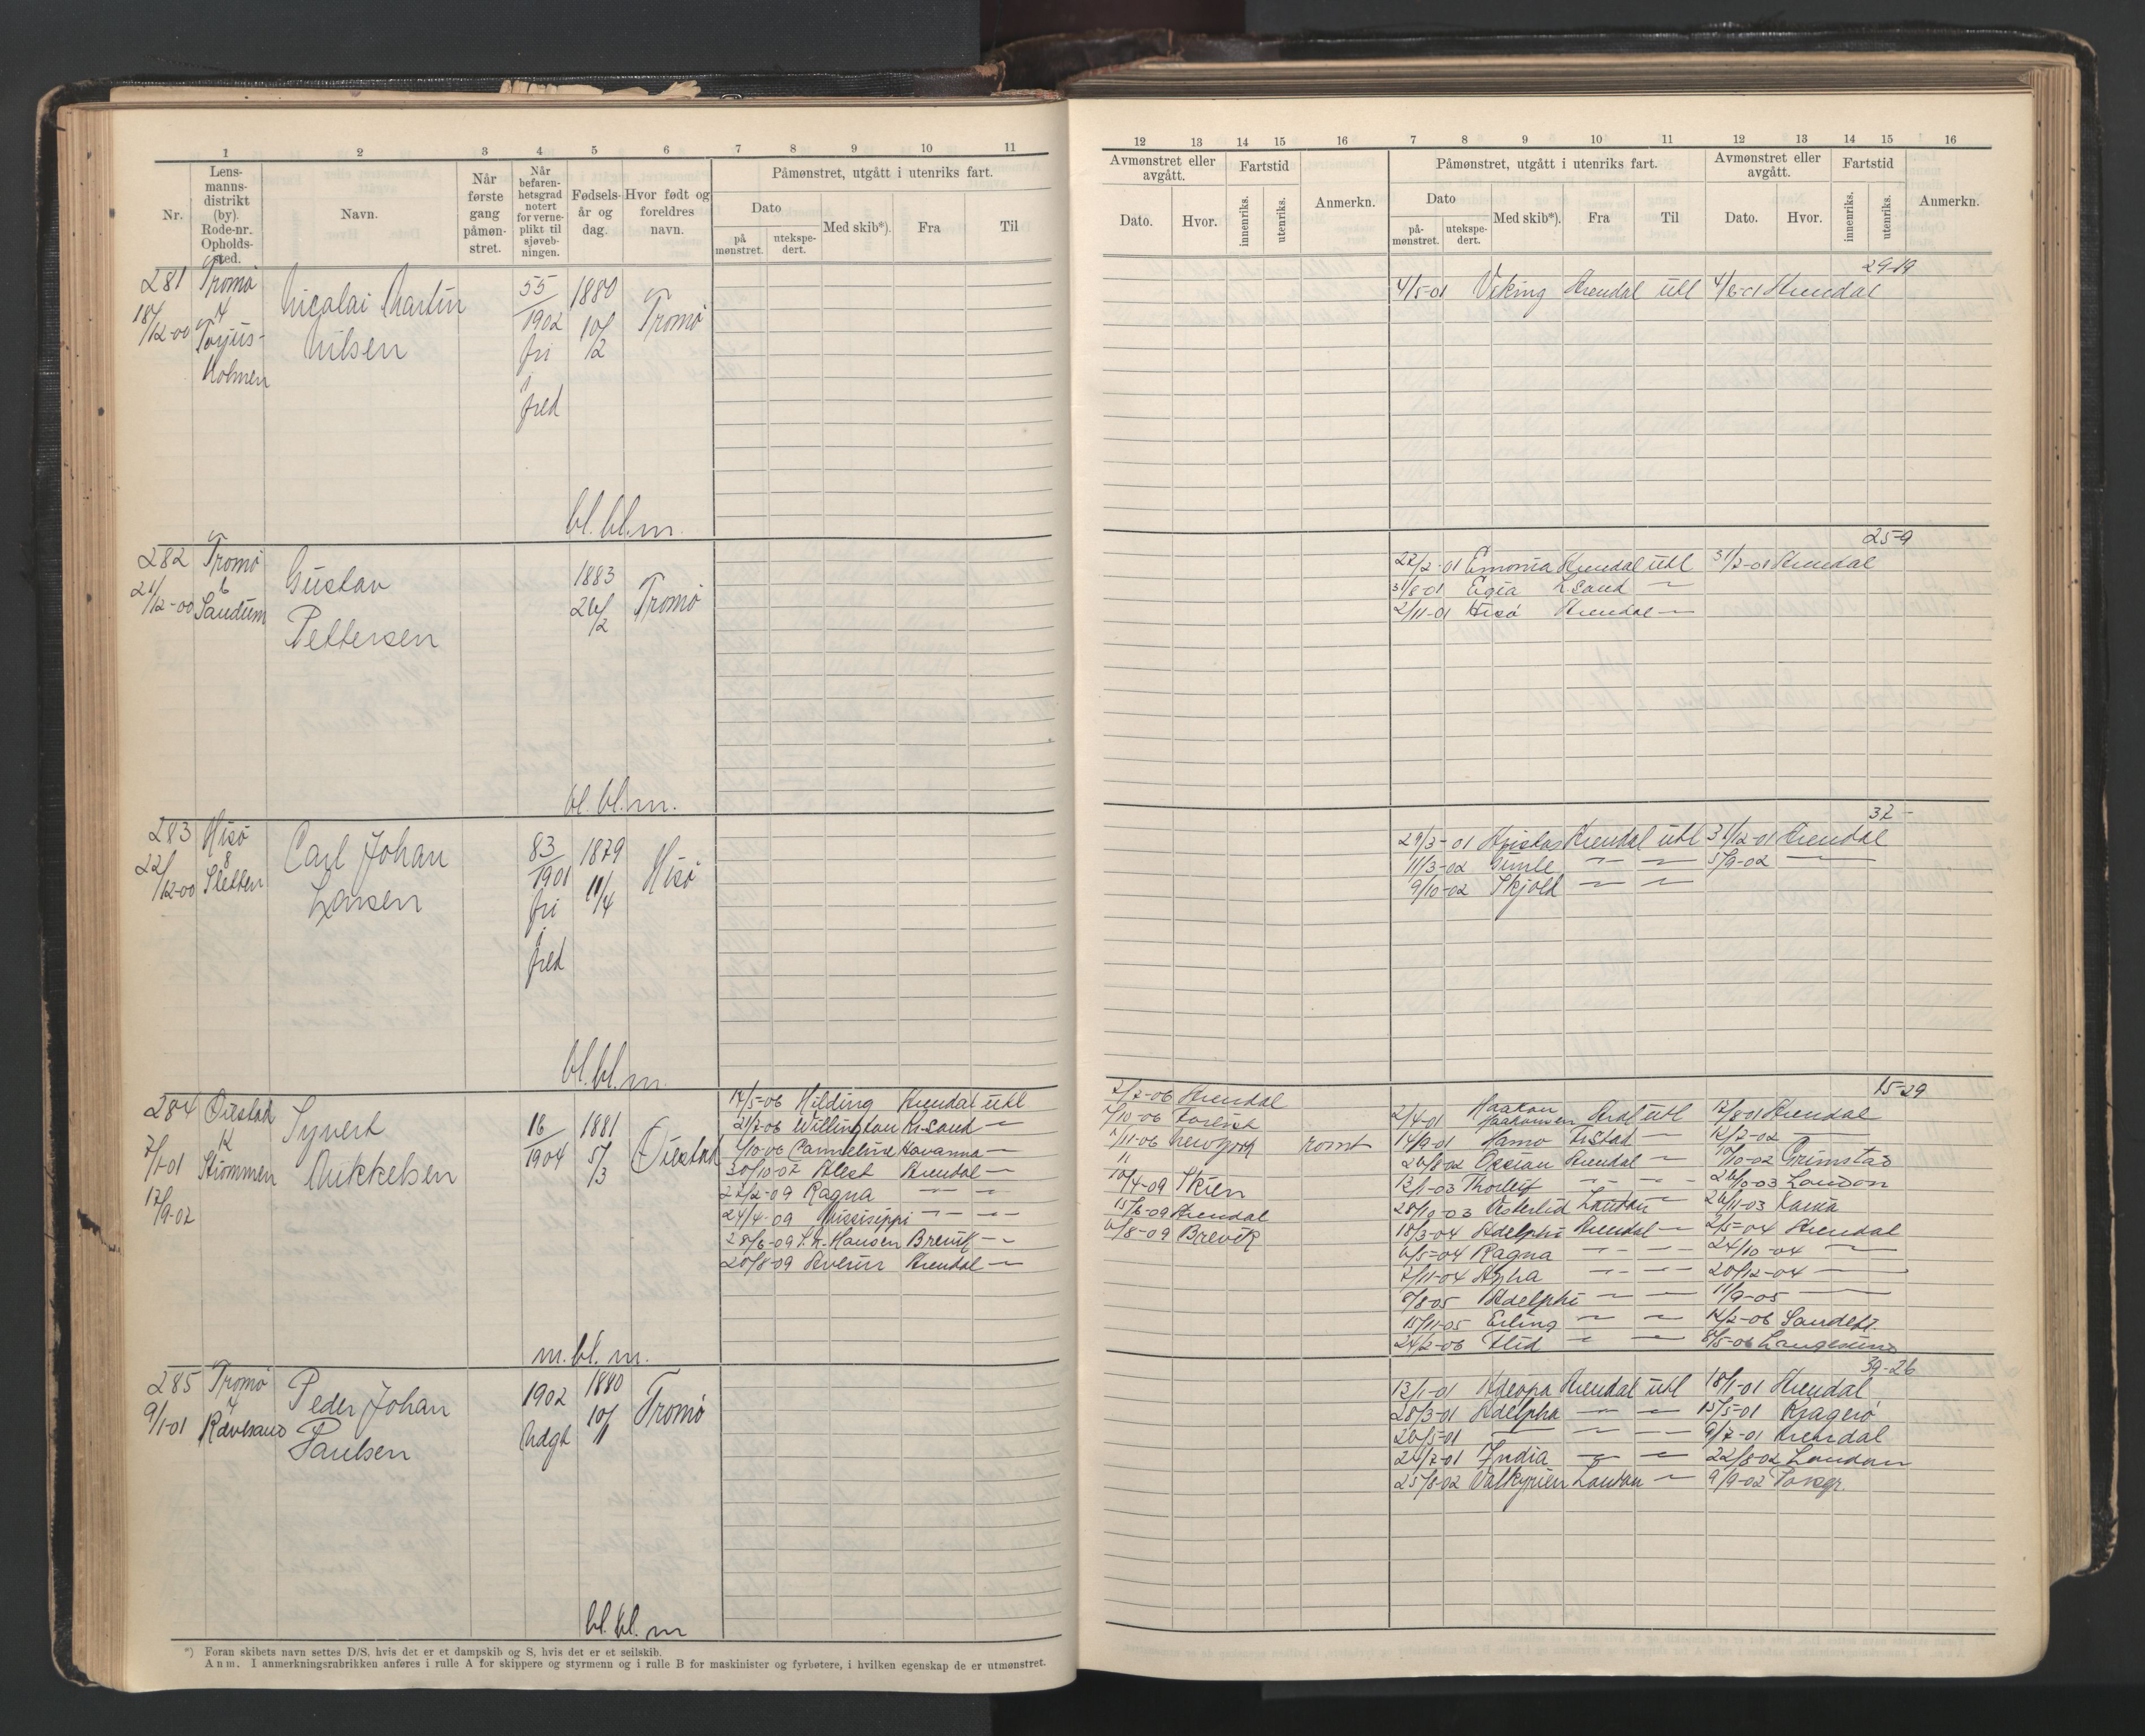 1 2 3 4 5 6 7 8 9 10 11
Nr.
Lens-
manns-
distrikt
(by).
Rode-nr.
Opholds-
sted.
Navn.
Når
første
gang
påmøn-
stret.
Når
befaren-
hetsgrad
notert
for verne-
plikt til
sjøveb-
ningen.
Fødsels-
år og
dag.
Hvor født og
foreldres
navn.
Påmønstret, utgått i utenriks fart.
Dato
på
mønstret.
utekspe-
dert.
Med skib*).
Fra
Til
281
18/12-00
Tromø
4
Torjus-
holmen
Nicolai Martin
Nilsen
55
1902
fri
i
fred
1880
10/2
Tromø
bl. bl. m.
282
21/12-00
Tromø
6
Sandum
Gustav
Pettersen
1883
26/2
Tromø
bl. bl. m.
283
22/12-00
Hisø
8
Sletten
Carl Johan
Larsen
83
1901
fri
i
fred
1879
11/4
Hisø
bl. bl. m.
284
7/1-01
17/9-02
Øiestad
12
Strømmen
Syvert
Mikkelsen
16
1904
1881
5/3
Øiestad
17/5-06 Hilding Arendal utl
21/7-06 Willington Kr.sand —
1/10-06 Carmeline Havanna —
30/10-07 Alert Arendal —
27/2-09 Ragna — —
24/4-09 Missisippi — —
28/6-09 S. N. Hansen Brevik —
20/8-09 Severin Arendal —
m. bl. m.
285
9/1-01
Tromø
4
Rævesand
Peder Johan
Paulsen
1902
Udgt
1880
10/1
Tromø
bl. bl. m
*) Foran skibets navn settes D/S, hvis det er et dampskib og S, hvis det er et seilskib.
Anm. I anmerkningsrubrikken anføres i rulle A for skippere og styrmenn og i rulle B for maskinister og fyrbøtere, i hvilken egenskap de er utmønstret.
12 13 14 15 16 7 8 9 10 11 12 13 14 15 16
Avmønstret eller
avgått.
Dato.
Hvor.
Fartstid
innenriks.
utenriks.
Anmerkn.
Påmønstret, utgått i utenriks fart.
Dato
på-
mønstret.
utekspe-
dert.
Med skib*).
Fra
Til
Avmønstret eller
avgått.
Dato.
Hvor.
Fartstid
innenriks.
utenriks.
Anmerkn.
29-19
4/5-01 Viking Arendal utl 4/6-01 Arendal
25-9
22/2-01 Arendal utl 31/7-01 Arendal
31/8-01 Egia L.sand —
2/11-01 Hisø Arendal —
37-
29/3-01 Arendal utl 31/12-01 Arendal
11/3-02 Gimle — — 5/9-02 —
9/10-02 Skjold — —
15-29
2/7-06 Arendal
7/10-06
1/11-06 Newyork rømt
11
10/4-09 Skien
15/6-09 Arendal
6/8-09 Brevik
2/4-01 Haakon
Haakonsen Aral utl 17/8-01 Arendal
14/9-01 Hamo — 12/7-02 —
26/8-02 Ossian Arendal — 10/10-02 Grimstad
13/1-03 Thorleif — — 26/10-03 London
28/10-03 Vesterlid London — 26/11-03
18/3-04 Adelphi Arendal — 2/5-04 Arendal
6/5-04 Ragna — — 24/10-04 —
7/11-04 — — 20/12-04 —
8/8-05 Adelphi — — 11/9-05 —
15/11-05 Erling — — 14/2-06
24/2-06 — — 8/5-06 Langesund
39-26
13/1-01 Arendal utl 18/1-01 Arendal
28/3-01 Adelpha — — 15/5-01 Kragerø
20/5-01 — — — 9/7-01 Arendal
24/7-01 India — — 22/8-02 London
25/8-02 Valkyrien London — 9/9-02 Porsgr.